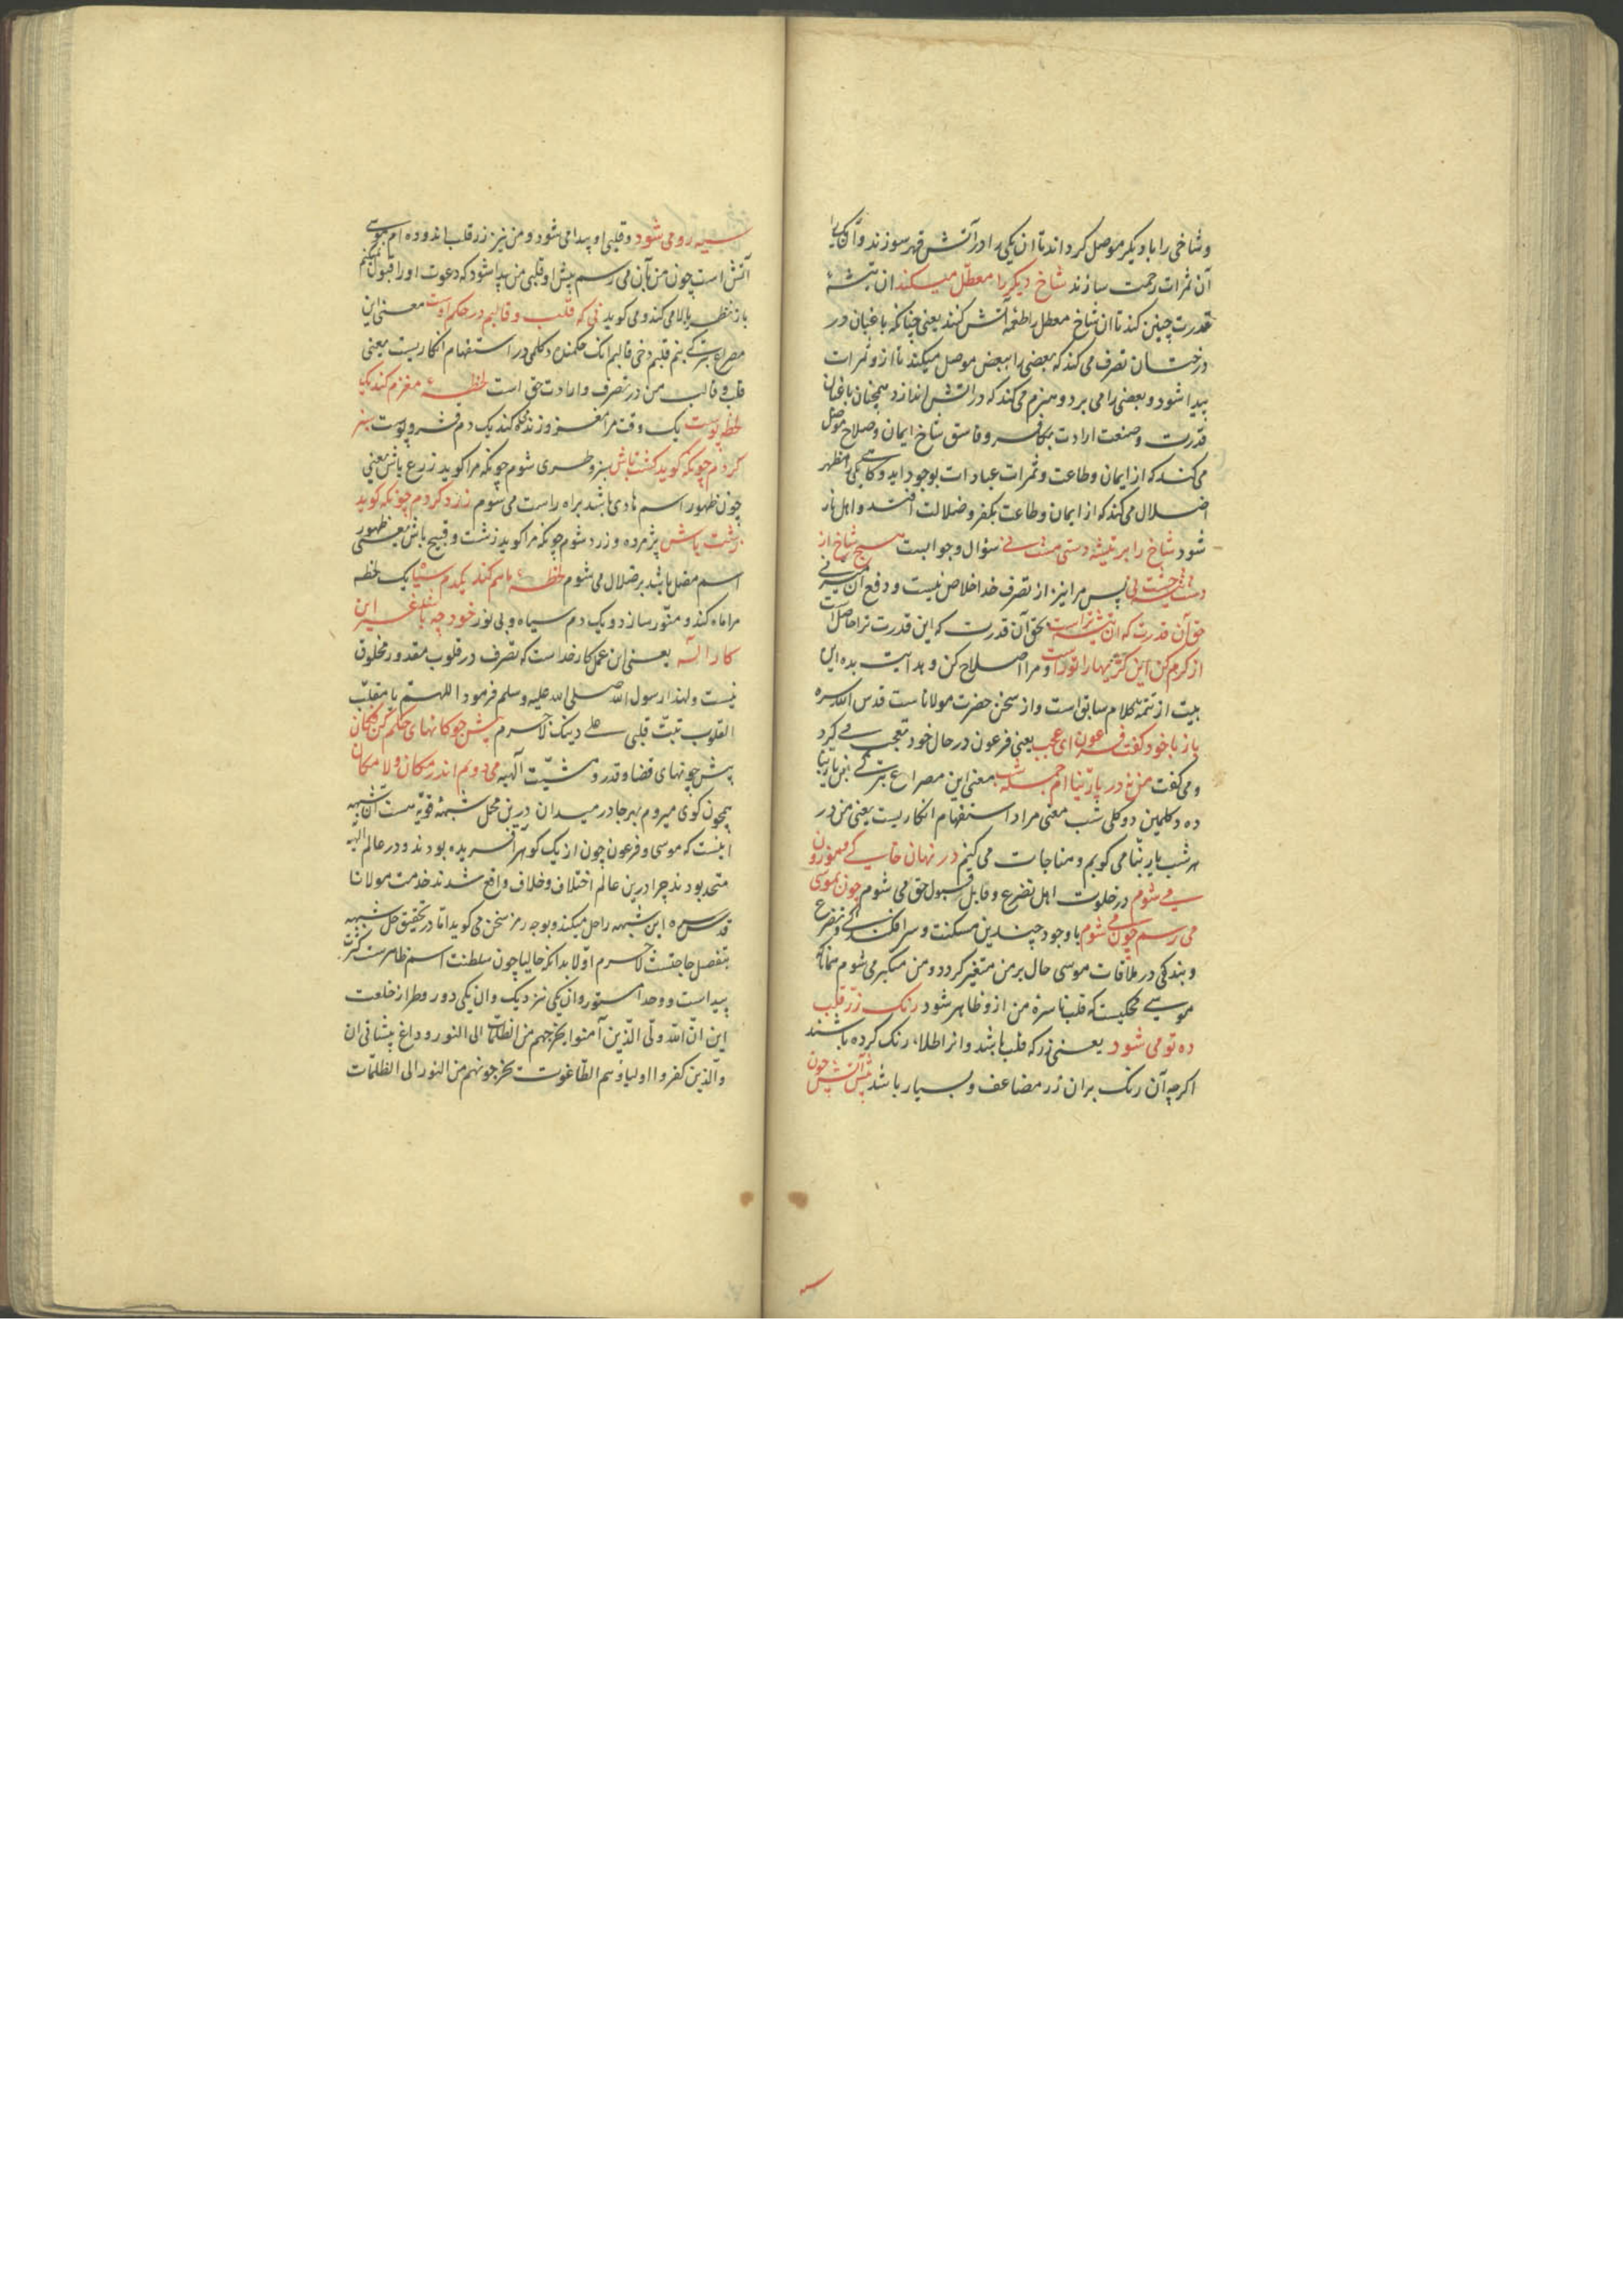 و شاخی را با دیکر موصل کرداند تا ان یکی را در آتش قهر سوزند و آن یکی را
آن ثمرات رحمت سازند شاخ دیکر را معطل میکند ان تیشهٔ
قدرت چنین کند تا ان شاخ معطل را طعمهٔ آتش کنند یعنی چنانکه باغبان در
درختان تصرف می کند که بعضی را ببعض موصل میکند تا ازو ثمرات
پیدا شود و بعضی را می برد و هیزم می کند که در آتش اندازد همچنان باغبان
قدرت و صنعت ارادت بکافر و فاسق شاخ ایمان و صلاح موصل
می کند که از ایمان و طاعت و ثمرات عبادات بوجود اید و کاهی یکی را مظهر
اضلال می کند که از ایمان و طاعت بکفر و ضلالت افتد و اهل نار
شود شاخ را بر تیشه دستی هست نی سؤال و جوابست هیچ شاخ از
دست تیشه جست نی پس مرا نیز از تصرف خدا خلاص نیست و دفع ان میسر نی
حق آن قدرت که ان تیشه تراست بحق آن قدرت که این قدرت ترا حاصل است
از کرم کن این کژیها را تو راست و مرا اصلاح کن و هدایت بده این
بیت از تتمهٔ کلام سابق است و از سخن حضرت مولاناست قدس الله سره
باز با خود کفت فرعون ای عجب یعنی فرعون در حال خود تعجب می کرد
و می کفت من نه در یا ربنا ام جمله شب معنی این مصراع بترکی بن یا ربنا
ده دکلمین دوکلی شب معنی مراد استفهام انکاریست یعنی من در
هر شب یا ربنا می کویم و مناجات می کنم در نهان خاکی و موزون
می شوم در خلوت اهل تضرع و قابل قبول حق می شوم چون بموسی
می رسم چون می شوم با وجود چندین مسکنت و سرافکندکی و تضرع
و بندکی در ملاقات موسی حال بر من متغیر کردد و من متکبر می شوم همانا که
موسی محکیست که قلب ناسرهٔ من ازو ظاهر شود رنک زر قلب
ده تو می شود یعنی زر که قلب باشد و انرا طلا، رنک کرده باشند
اکرچه آن رنک بران زر مضاعف و بسیار باشد پیش آتش چون
سیه رو می شود و قلبی او پیدا می شود و من نیز زر قلب اندوده ام موسی
آتش است چون من بآن می رسم پیش او قلبی من پیدا شود که دعوت او را قبول نمیکنم
باز نظر ببالا می کند و می کوید نی که قلب و قالبم در حکم اوست معنی این
مصراع بترکی بنم قلبم دخی قالبم انک حکمنده دکلمی در استفهام انکاریست یعنی
قلب و قالب من در تصرف و ارادت حق است لحظهٔ مغزم کند یک
لحظه پوست یک وقت مرا مغز و زنده کند یک دم قشر و پوست سبز
کردم چونکه کوید کشت باش سبز و طری شوم چونکه مرا کوید زرع باش یعنی
چون ظهور اسم هادی باشد براه راست می شوم زرد کردم چونکه کوید
زشت باش پژمرده و زرد شوم چونکه مرا کوید زشت و قبیح باش یعنی ظهور
اسم مضل باشد بر ضلال می شوم لحظهٔ ماهم کند یکدم سیاه یک لحظه
مرا ماه کند و منور سازد و یک دم سیاه و بی نور خود چه باشد غیر این
کار اله یعنی این عمل کار خداست که تصرف در قلوب مقدور مخلوق
نیست و لهذا رسول الله صلی الله علیه و سلم فرمود اللهم یا مقلب
القلوب ثبت قلبی علی دینک لاجرم پیش چوکانهای حکم کن فکان
پیش چوبهای قضا و قدر و مشیت الهیه می دویم اندر مکان و لامکان
همچون کوی میروم بهر جا در میدان درین محل شبههٔ قویه هست آن شبهه
اینست که موسی و فرعون چون از یک کوهر آفریده بودند و در عالم الهیه
متحد بودند چرا درین عالم اختلاف و خلاف واقع شدند خدمت مولانا
قدس سره این شبهه را حل میکند و بوجه رمز سخن می کوید اما در تحقیق حل شبهه
بتفصیل حاجتست لاجرم اولا بدانکه حالیا چون سلطنت اسم ظاهرست کثرت
پیداست و وحدت مستور وان یکی نزدیک وان یکی دور و طراز خلعت
این ان الله ولی الذین آمنوا یخرجهم من الظلمات الی النور و داغ پیشانی ان
والذین کفروا اولیاؤهم الطاغوت یخرجونهم من النور الی الظلمات